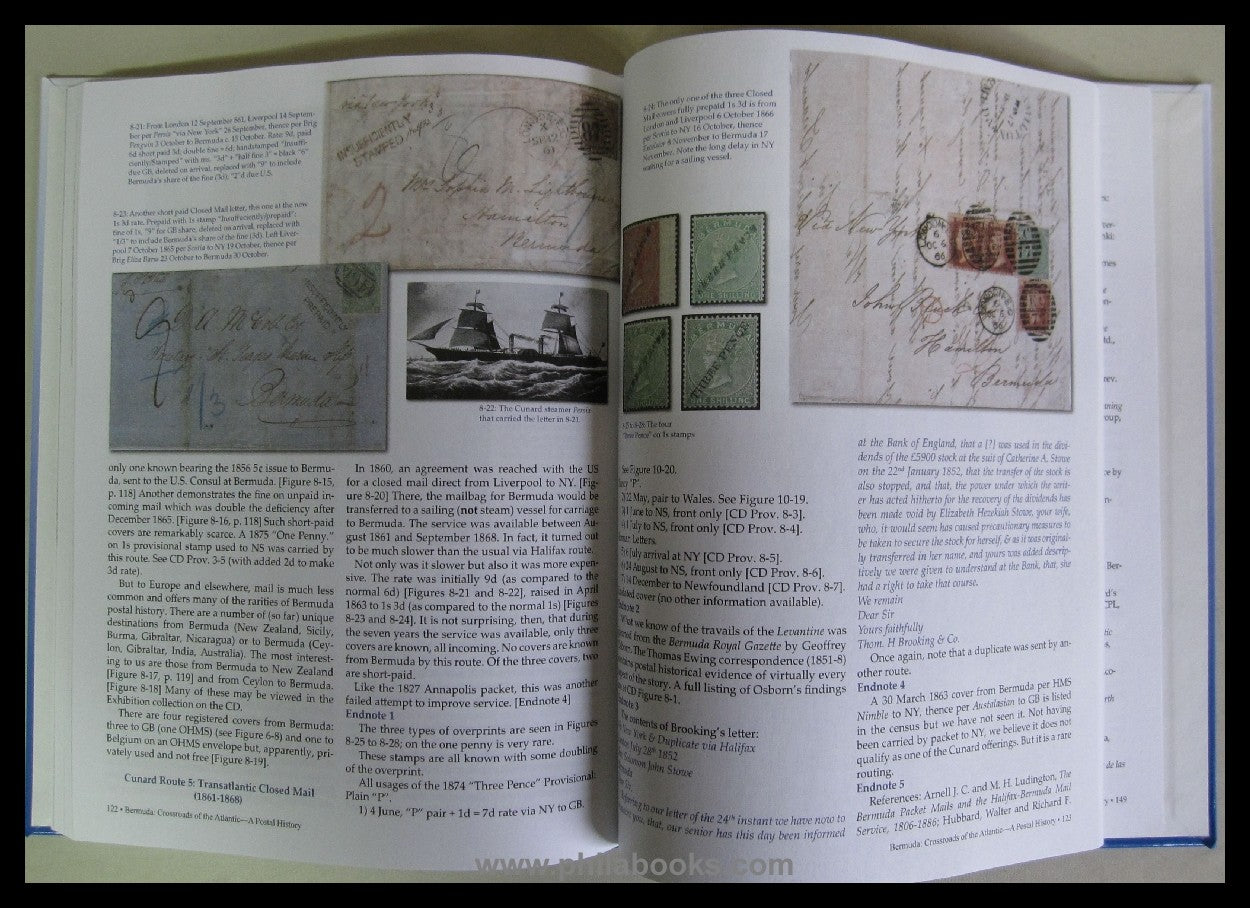 8-21: From London 12 September 861, Liverpool 14 Septem-
ber per Persia "via New York" 26 September, thence per Brig
Penguin 3 October to Bermuda c. 15 October. Rate: 9d, paid
6d short paid 3d; double fine = 6d; handstamped "Insuffi-
ciently/Stamped" with ms. "3d" + "Half fine 3" = black "6"
due GB, deleted on arrival, replaced with "9" to include
Bermuda's share of the fine (3d), "2"d due U.S.
via New York
INSUFFICIENTLY
STAMPED
Hamilton
Bermuda
8-23: Another short paid Closed Mail letter, this one at the new
1s 3d rate. Prepaid with 1s stamp "Insufficiently/prepaid";
fine of 1s, "9" for GB share, deleted on arrival, replaced with
"1/3" to include Bermuda's share of the fine (3d). Left Liver-
pool 7 October 1865 per Scotia to NY 19 October, thence per
Brig Eliza Barss 23 October to Bermuda 30 October.
Bermuda
1/3
8-22: The Cunard steamer Persia
that carried the letter in 8-21.
only one known bearing the 1856 5¢ issue to Bermu-
da, sent to the U.S. Consul at Bermuda. [Figure 8-15,
p. 118] Another demonstrates the fine on unpaid in-
coming mail which was double the deficiency after
December 1865. [Figure 8-16, p. 118] Such short-paid
covers are remarkably scarce. A 1875 "One Penny."
on 1s provisional stamp used to NS was carried by
this route. See CD Prov. 3-5 (with added 2d to make
3d rate).
But to Europe and elsewhere, mail is much less
common and offers many of the rarities of Bermuda
postal history. There are a number of (so far) unique
destinations from Bermuda (New Zealand, Sicily,
Burma, Gibraltar, Nicaragua) or to Bermuda (Cey-
lon, Gibraltar, India, Australia). The most interest-
ing to us are those from Bermuda to New Zealand
[Figure 8-17, p. 119] and from Ceylon to Bermuda.
[Figure 8-18] Many of these may be viewed in the
Exhibition collection on the CD.
There are four registered covers from Bermuda:
three to GB (one OHMS) (see Figure 6-8) and one to
Belgium on an OHMS envelope but, apparently, pri-
vately used and not free [Figure 8-19].
Cunard Route 5: Transatlantic Closed Mail
(1861-1868)
122 • Bermuda: Crossroads of the Atlantic—A Postal History
In 1860, an agreement was reached with the US
for a closed mail direct from Liverpool to NY. [Fig-
ure 8-20] There, the mailbag for Bermuda would be
transferred to a sailing (not steam) vessel for carriage
to Bermuda. The service was available between Au-
gust 1861 and September 1868. In fact, it turned out
to be much slower than the usual via Halifax route.
Not only was it slower but also it was more expen-
sive. The rate was initially 9d (as compared to the
normal 6d) [Figures 8-21 and 8-22], raised in April
1863 to 1s 3d (as compared to the normal 1s) [Figures
8-23 and 8-24]. It is not surprising, then, that during
the seven years the service was available, only three
covers are known, all incoming. No covers are known
from Bermuda by this route. Of the three covers, two
are short-paid.
Like the 1827 Annapolis packet, this was another
failed attempt to improve service. [Endnote 4]
Endnote 1
The three types of overprints are seen in Figures
8-25 to 8-28; on the one penny is very rare.
These stamps are all known with some doubling
of the overprint.
All usages of the 1874 "Three Pence" Provisional:
Plain "P".
1) 4 June, "P" pair + 1d = 7d rate via NY to GB.
8-24: The only one of the three Closed
Mail covers fully prepaid 1s 3d is from
London and Liverpool 6 October 1866
per Scotia to NY 16 October, thence
November to Bermuda 17
November. Note the long delay in NY
waiting for a sailing vessel.
THREE PENCE
ONE SHILLING
THREE PENCE
Via New York
Hamilton
Bermuda
8-28: The four
"Three Pence" on 1s stamps
See Figure 10-20.
"P".
22 May, pair to Wales. See Figure 10-19.
June to NS, front only [CD Prov. 8-3].
July to NS, front only [CD Prov. 8-4].
Letters.
July arrival at NY [CD Prov. 8-5].
24 August to NS, front only [CD Prov. 8-6].
14 December to Newfoundland [CD Prov. 8-7].
cover (no other information available).
Endnote 2
What we know of the travails of the Levantine was
from the Bermuda Royal Gazette by Geoffrey
The Thomas Ewing correspondence (1851-8)
postal historical evidence of virtually every
of the story. A full listing of Osborn's findings
CD Figure 8-1.
Endnote 3
The contents of Brooking's letter:
New York & Duplicate via Halifax
July 28th 1852
Solomon John Stowe
Referring to our letter of the 24th instant we have now to
you, that, our senior has this day been informed
at the Bank of England, that a [?] was used in the divi-
dends of the £5900 stock at the suit of Catherine A. Stowe
on the 22nd January 1852, that the transfer of the stock is
also stopped, and that, the power under which the writ-
er has acted hitherto for the recovery of the dividends has
been made void by Elizabeth Hezekiah Stowe, your wife,
who, it would seem has caused precautionary measures to
be taken to secure the stock for herself, & as it was original-
ly transferred in her name, and yours was added descrip-
tively we were given to understand at the Bank, that, she
had a right to take that course.
We remain
Dear Sir
Yours faithfully
Thom. H Brooking & Co.
Once again, note that a duplicate was sent by an-
other route.
Endnote 4
A 30 March 1863 cover from Bermuda per HMS
Nimble to NY, thence per Australasian to GB is listed
in the census but we have not seen it. Not having
been carried by packet to NY, we believe it does not
qualify as one of the Cunard offerings. But it is a rare
routing.
Endnote 5
References: Arnell J. C. and M. H. Ludington, The
Bermuda Packet Mails and the Halifax-Bermuda Mail
Service, 1806-1886; Hubbard, Walter and Richard F.
Bermuda: Crossroads of the Atlantic—A Postal History • 123
de las
149
www.philabooks.com